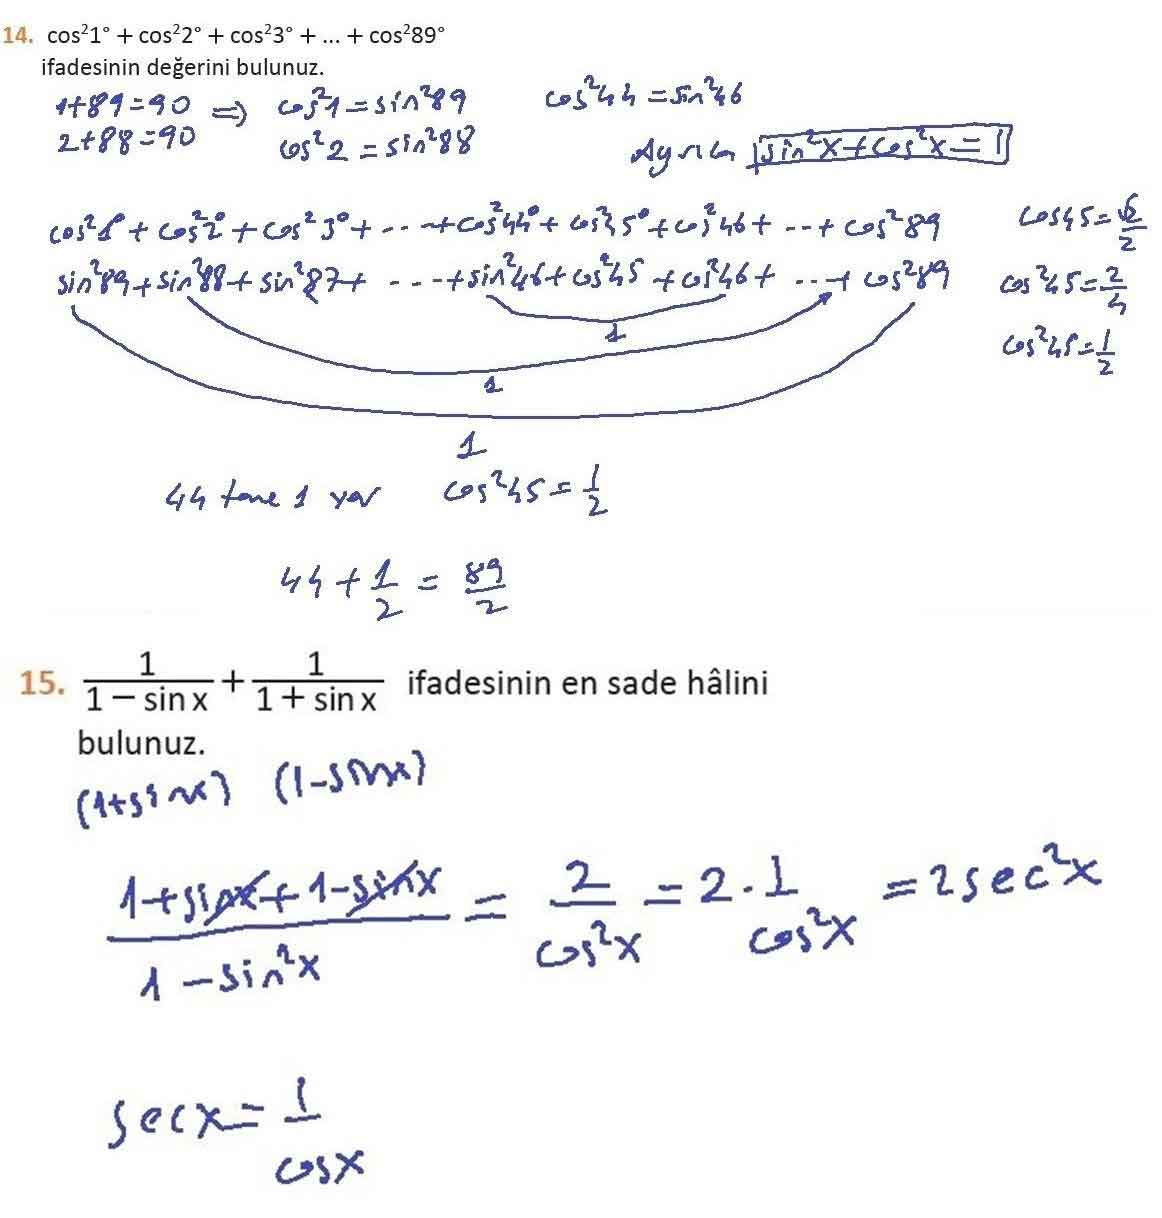 14. cos²1° + cos²2° + cos²3° + ... + cos²89°
ifadesinin değerini bulunuz.
1+89=90 ⇒ cos²1=sin²89 cos²44=sin²46
2+88=90 cos²2=sin²88
Ayrıca sin²x+cos²x=1
cos²1°+cos²2°+cos²3°+...+cos²44°+cos²45°+cos²46+...+cos²89 cos45=√2/2
sin²89+sin²88+sin²87+...+sin²46+cos²45+cos²46+...+cos²89 cos²45=2/4
1 cos²45=1/2
1
1
44 tane 1 var cos²45=1/2
44+1/2=89/2
15. 1/(1−sin x) + 1/(1+sin x) ifadesinin en sade hâlini
bulunuz.
(1+sinx) (1-sinx)
(1+sinx+1-sinx)/(1-sin²x) = 2/cos²x = 2·1/cos²x = 2sec²x
secx=1/cosx